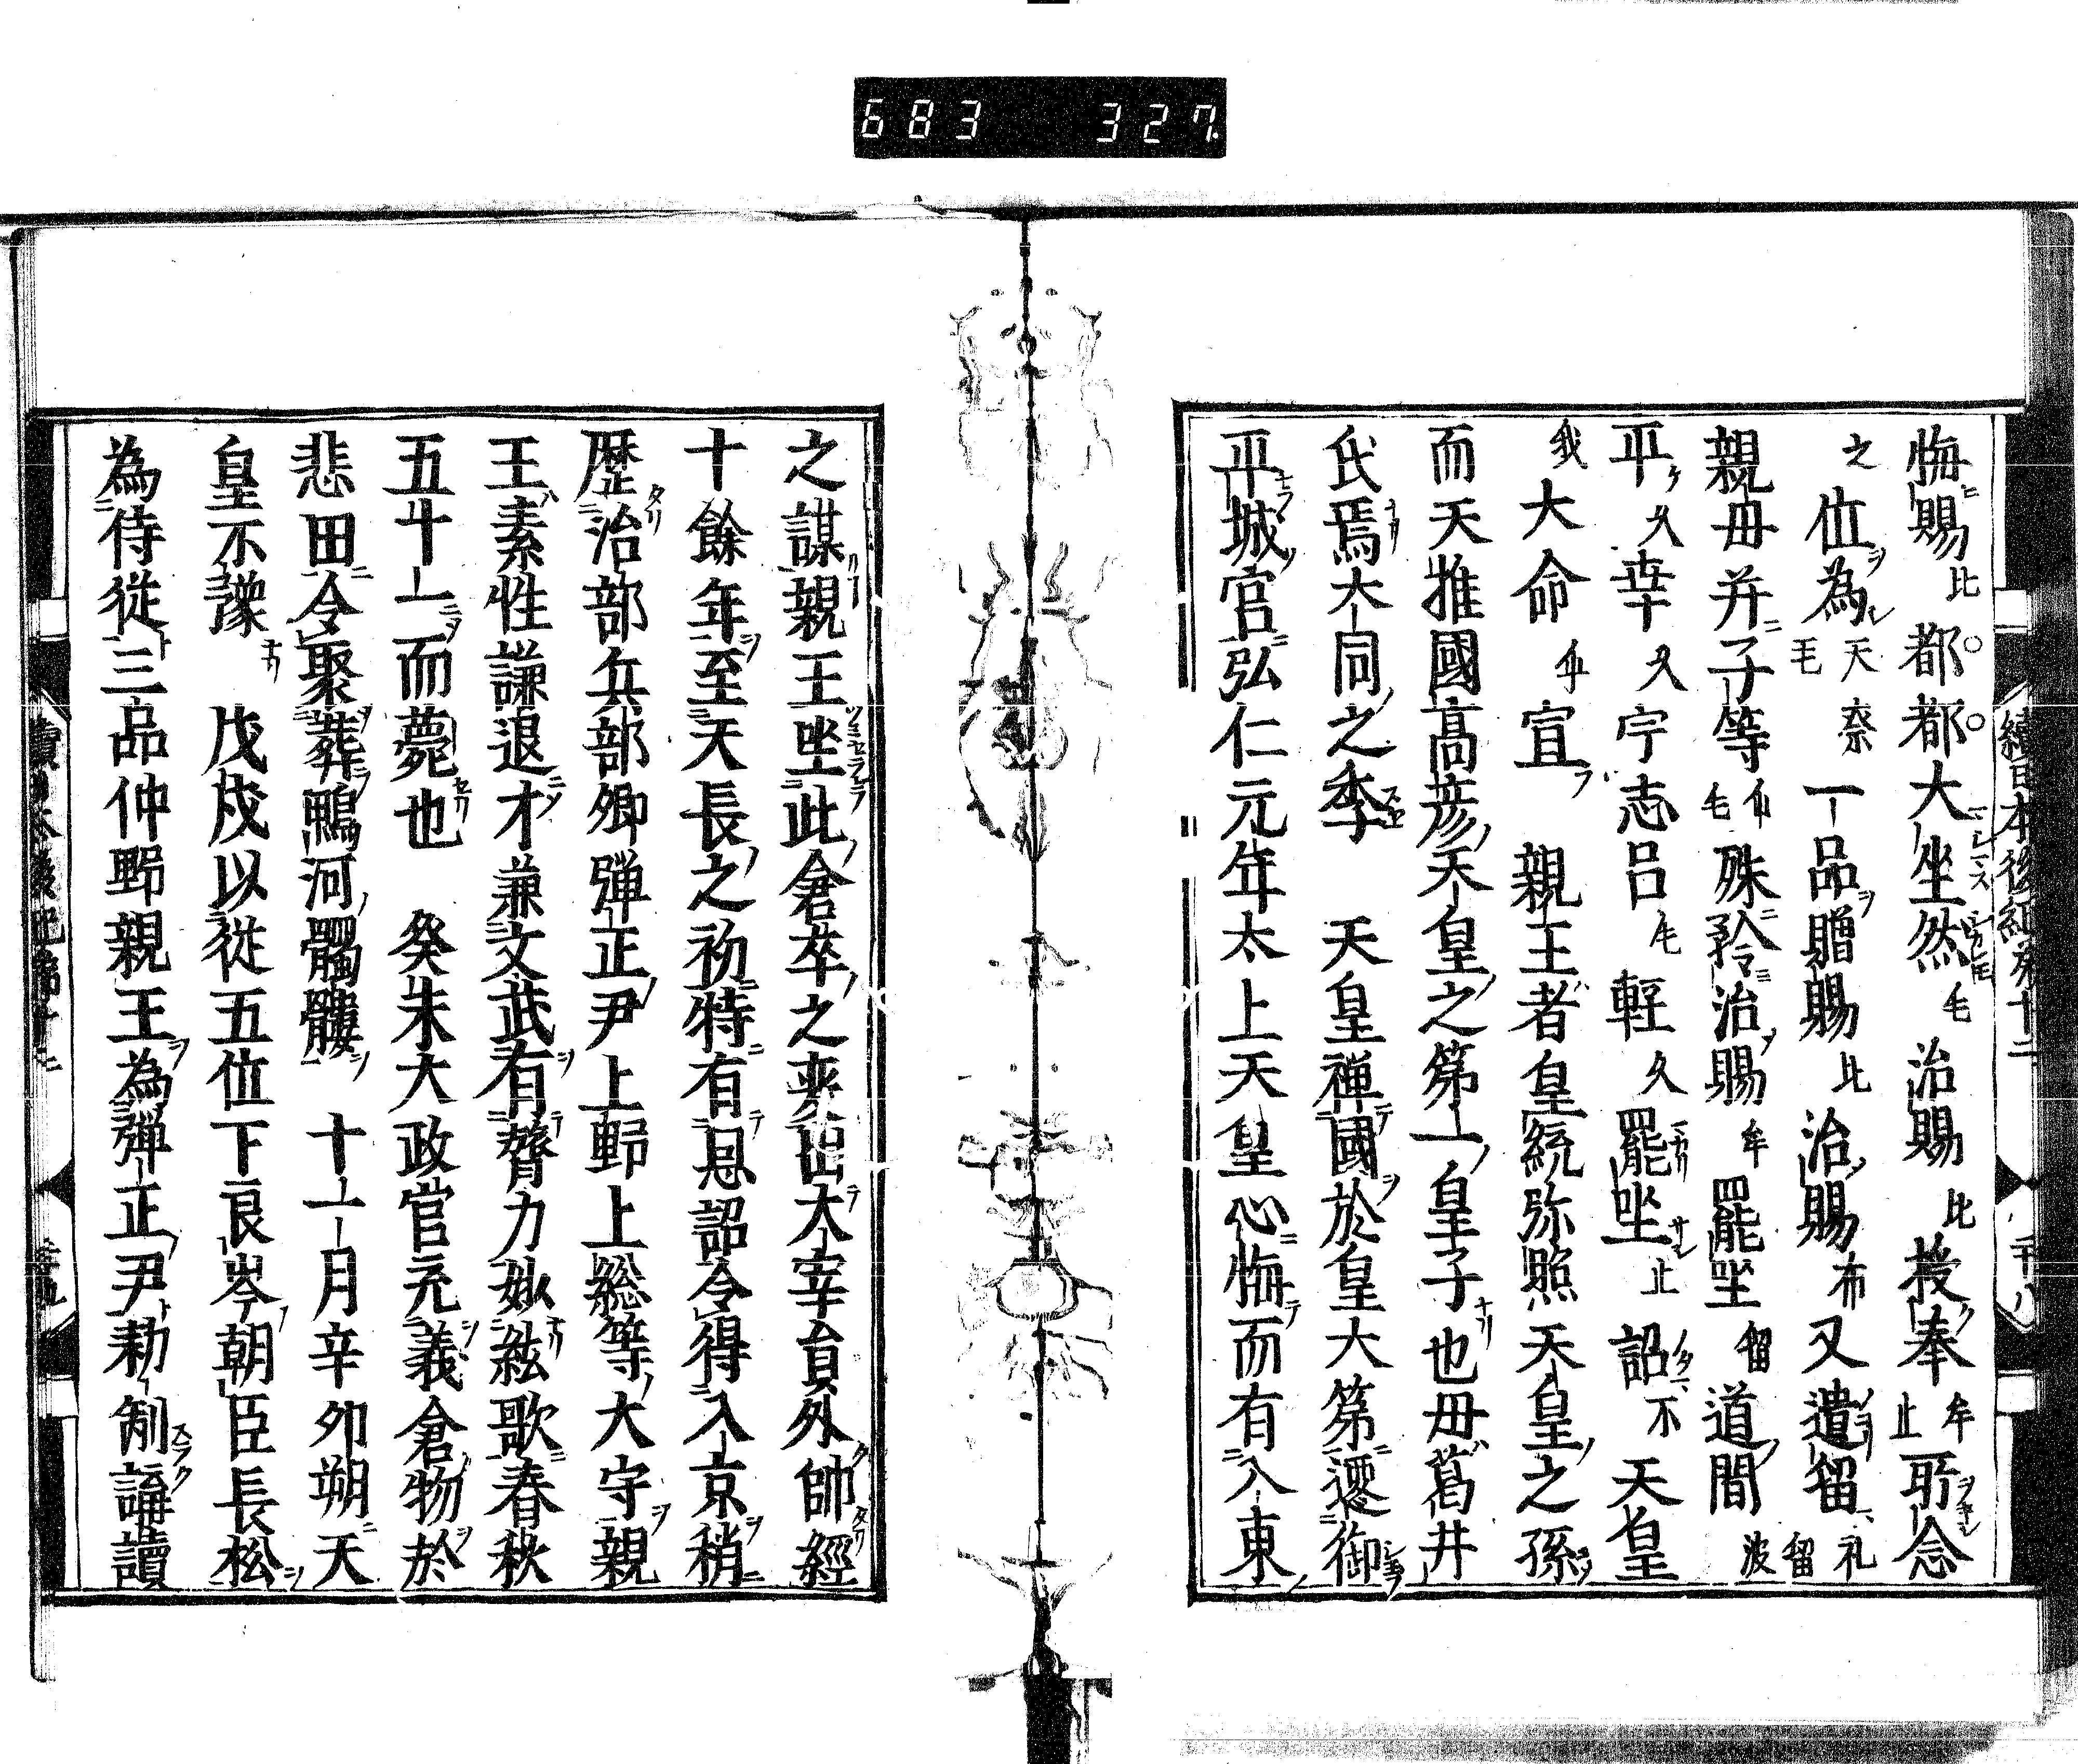 683 327
續日本後紀第十二 二十八
悔賜比都都大坐然毛治賜比授奉牟止所念
之位為天奈毛一品贈賜比治賜布又遺留礼留波
親毋并子等仂毛殊矜治賜牟罷坐留道間
平久幸久宇志呂毛輕久罷坐止詔不天皇
我大命乎宣 親王者皇統弥照天皇之孫
而天推國高彦天皇之第一皇子也毋葛井
氏焉大同之季 天皇禅國於皇大第遷御
平城宮弘仁元年太上天皇心悔而有入東
之謀親王坐此倉卒之変出大宰負外帥經
十餘年至天長之初特有恩詔令得入京稍
歷治部兵部卿弾正尹上野上総等大守親
王素性謙退才兼文武有膂力妙絃歌春秋
五十一而薨也 癸未大政官充義倉物於
悲田令聚葬鴨河髑髏 十一月辛夘朔天
皇不豫 戊戌以從五位下良岑朝臣長松
為侍從三品仲野親王為弾正尹勅制誦讀